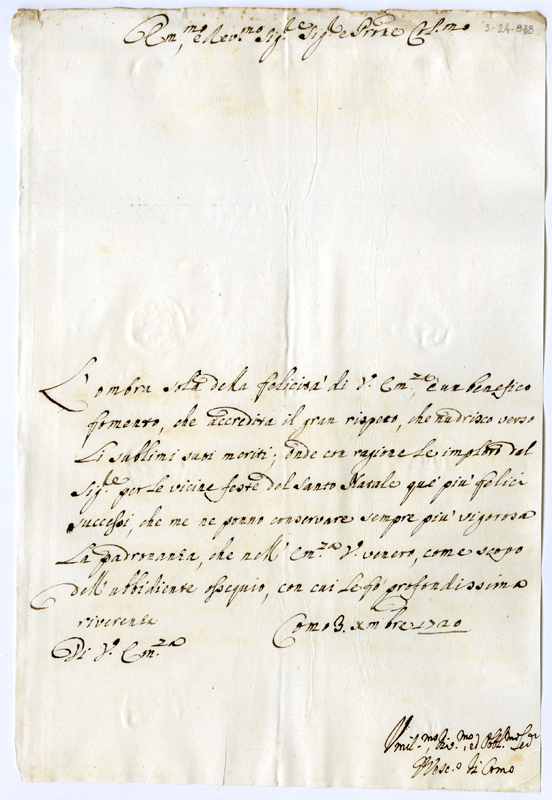 3-24-838
Em.mo e Rev.mo Sig.re Sig.re e Prone Col.mo
L'ombra sola della felicità di V.ª Em.za è un benefico
fomento, che accredita il gran rispetto, che nudrisco verso
li sublimi suoi meriti; onde con ragione le imploro dal
Sig.re per le vicine feste del Santo Natale que' più felici
successi, che me ne ponno conservare sempre più vigorosa
la padronanza, che nell' Em.za V.ª venero, come scopo
dell' ubbidiente ossequio, con cui le fò profondissima
riverenza
Como 3. Xmbre 1720
Di V.ª Em.za
Umil.mo, Div.mo, ed Obbl.mo Ser
Vesc.o di Como